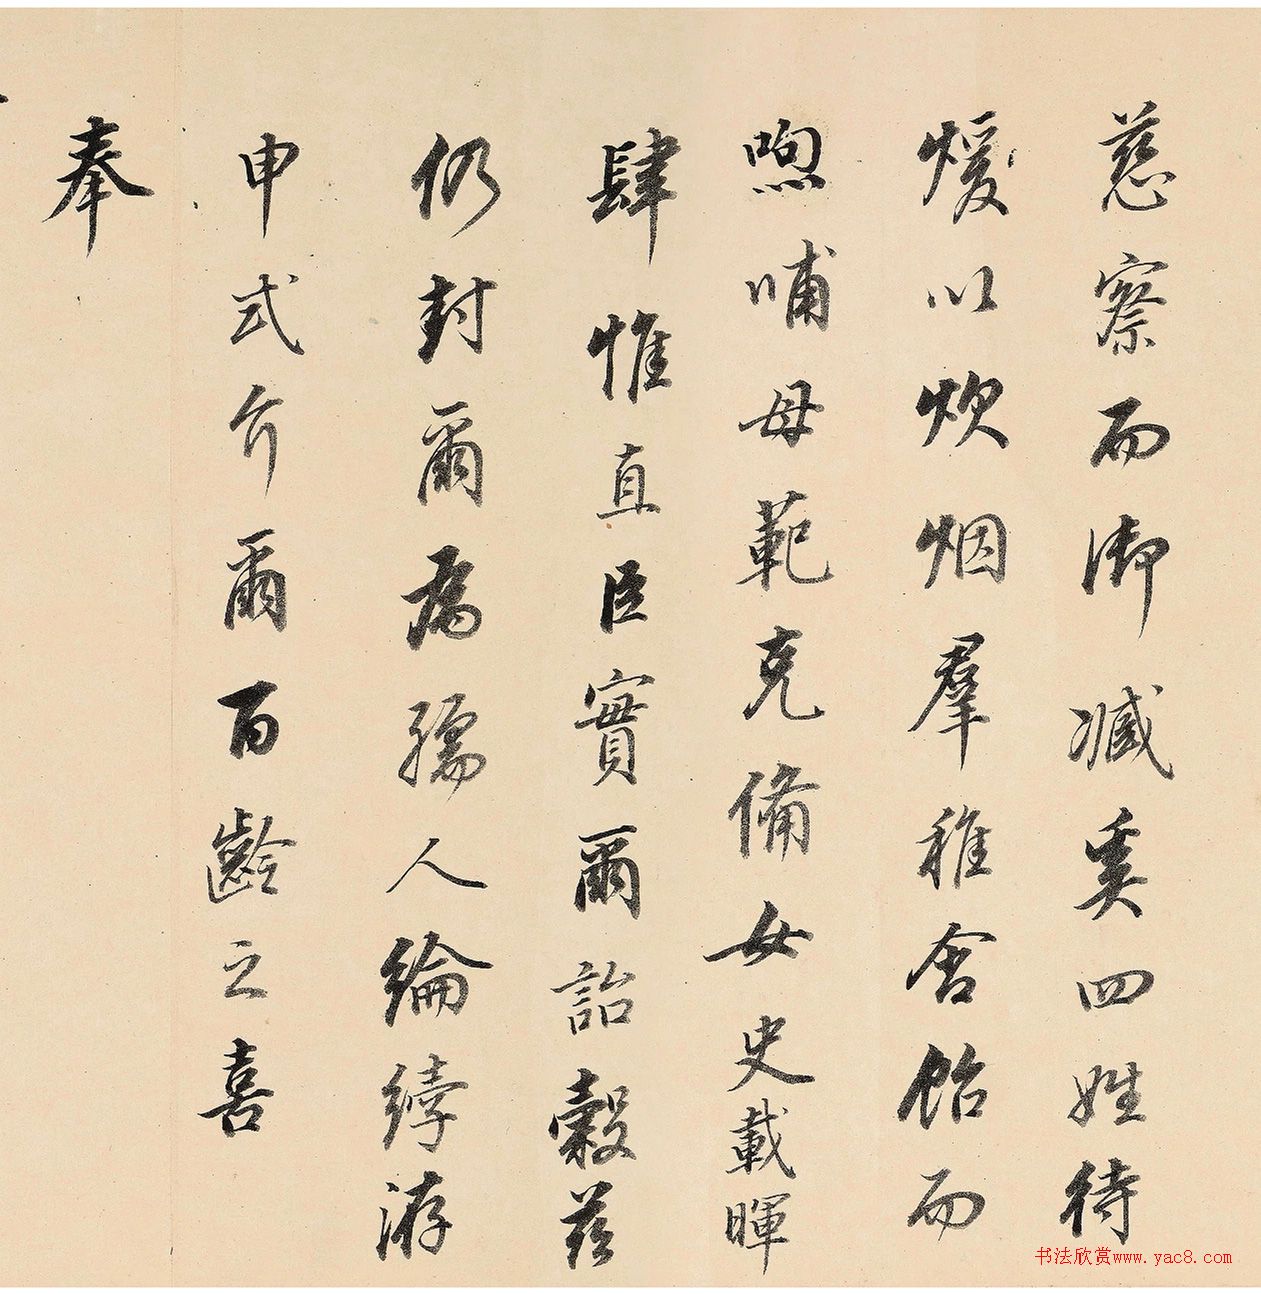 慈察而御臧奚四姓待
煖以炊烟羣稚含飴而
喣哺母範克備女史載暉
肆惟直臣實爾詒穀茲
仍封爾為孺人綸綍游
申式介爾百齡之喜
奉
书法欣赏www.yac8.com